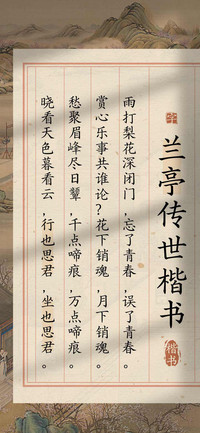 兰亭传世楷书
楷书
雨打梨花深闭门，忘了青春，误了青春。
赏心乐事共谁论？花下销魂，月下销魂。
愁聚眉峰尽日颦，千点啼痕，万点啼痕。
晓看天色暮看云，行也思君，坐也思君。